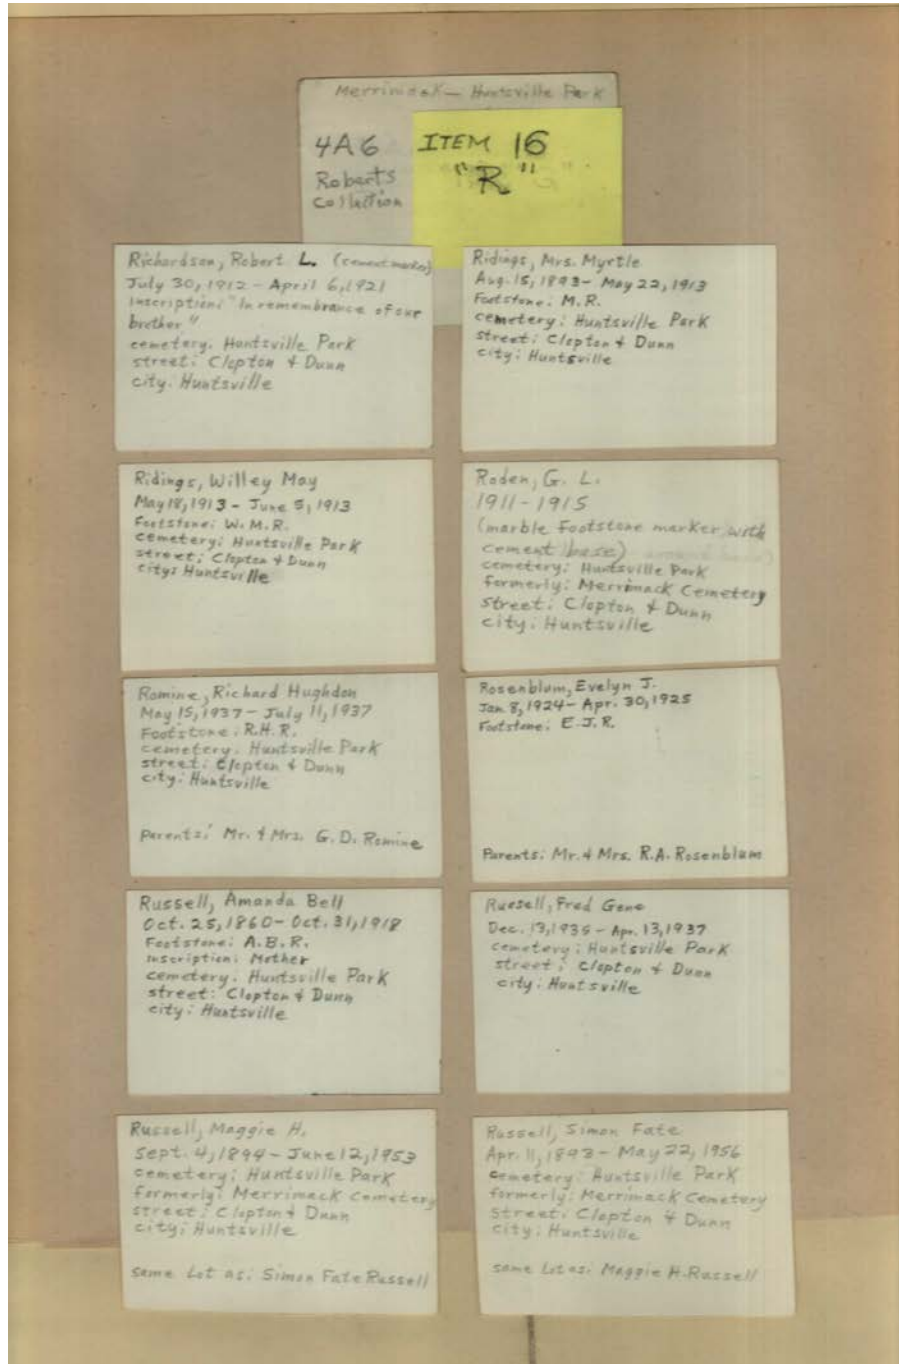 Merrimack - Huntsville Park
4A6
Roberts
Collection
ITEM 16
"R"
Richardson, Robert L. (cement marker)
July 30, 1912 - April 6, 1921
Inscription: "In remembrance of our
brother"
cemetery: Huntsville Park
street: Clopton & Dunn
city: Huntsville
Ridings, Mrs. Myrtle
Aug. 15, 1893 - May 22, 1913
Footstone: M.R.
cemetery: Huntsville Park
street: Clopton & Dunn
city: Huntsville
Ridings, Willey May
May 18, 1913 - June 5, 1913
Footstone: W.M.R.
cemetery: Huntsville Park
street: Clopton & Dunn
city: Huntsville
Roden, G. L.
1911 - 1915
(marble footstone marker with
cement base)
cemetery: Huntsville Park
formerly: Merrimack Cemetery
street: Clopton & Dunn
city: Huntsville
Romine, Richard Hughdon
May 15, 1937 - July 11, 1937
Footstone: R.H.R.
cemetery: Huntsville Park
street: Clopton & Dunn
city: Huntsville
Parents: Mr. & Mrs. G. D. Romine
Rosenblum, Evelyn J.
Jan. 8, 1924 - Apr. 30, 1925
Footstone: E.J.R.
Parents: Mr. & Mrs. R.A. Rosenblum
Russell, Amanda Bell
Oct. 25, 1860 - Oct. 31, 1918
Footstone: A.B.R.
Inscription: Mother
cemetery: Huntsville Park
street: Clopton & Dunn
city: Huntsville
Russell, Fred Gene
Dec. 13, 1935 - Apr. 13, 1937
cemetery: Huntsville Park
street: Clopton & Dunn
city: Huntsville
Russell, Maggie H.
Sept. 4, 1894 - June 12, 1953
cemetery: Huntsville Park
formerly: Merrimack Cemetery
street: Clopton & Dunn
city: Huntsville
same Lot as: Simon Fate Russell
Russell, Simon Fate
Apr. 11, 1893 - May 22, 1956
cemetery: Huntsville Park
formerly: Merrimack Cemetery
street: Clopton & Dunn
city: Huntsville
same Lot as: Maggie H. Russell